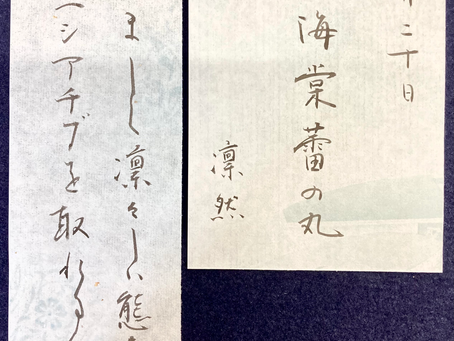 二十日
海棠蕾の丸
凛然
ましく凛々しい態
シアチブを取れる